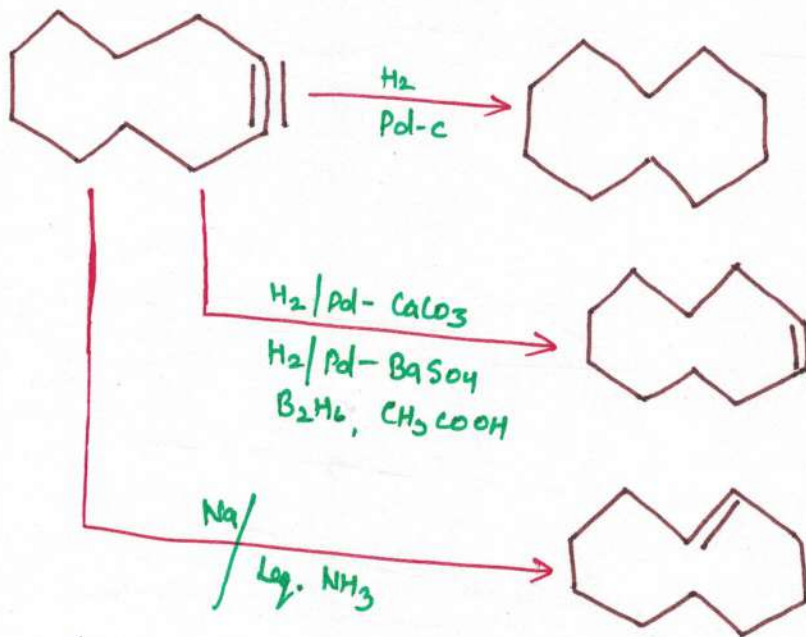 H2
Pd-c
H2/Pd- CaCO3
H2/Pd- BaSO4
B2H6, CH3COOH
Na/
Leq. NH3